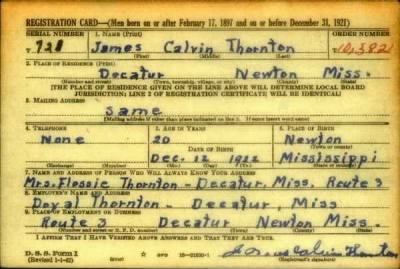 REGISTRATION CARD—(Men born on or after February 17, 1897 and on or before December 31, 1921)
SERIAL NUMBER 1. NAME (Print) ORDER NUMBER
T 728 James Calvin Thornton 10,382
(First) (Middle) (Last)
2. PLACE OF RESIDENCE (Print)
Decatur Newton Miss.
(Number and street) (Town, township, village, or city) (County) (State)
[THE PLACE OF RESIDENCE GIVEN ON THE LINE ABOVE WILL DETERMINE LOCAL BOARD
JURISDICTION; LINE 2 OF REGISTRATION CERTIFICATE WILL BE IDENTICAL]
3. MAILING ADDRESS
Same
(Mailing address if other than place indicated on line 2. If same insert word same)
4. TELEPHONE 5. AGE IN YEARS 6. PLACE OF BIRTH
None 20 Newton
DATE OF BIRTH (Town or county)
Dec. 12 1922 Mississippi
(Exchange) (Number) (Mo.) (Day) (Yr.) (State or country)
7. NAME AND ADDRESS OF PERSON WHO WILL ALWAYS KNOW YOUR ADDRESS
Mrs. Flossie Thornton - Decatur, Miss. Route 3
8. EMPLOYER'S NAME AND ADDRESS
Doyal Thornton - Decatur, Miss
9. PLACE OF EMPLOYMENT OR BUSINESS
Route 3 Decatur Newton Miss.
(Number and street or R. F. D. number) (Town) (County) (State)
I AFFIRM THAT I HAVE VERIFIED ABOVE ANSWERS AND THAT THEY ARE TRUE.
D. S. S. Form 1
(Revised 1-1-42) (over) GPO 16-21630-1 James Calvin Thornton
(Registrant's signature)